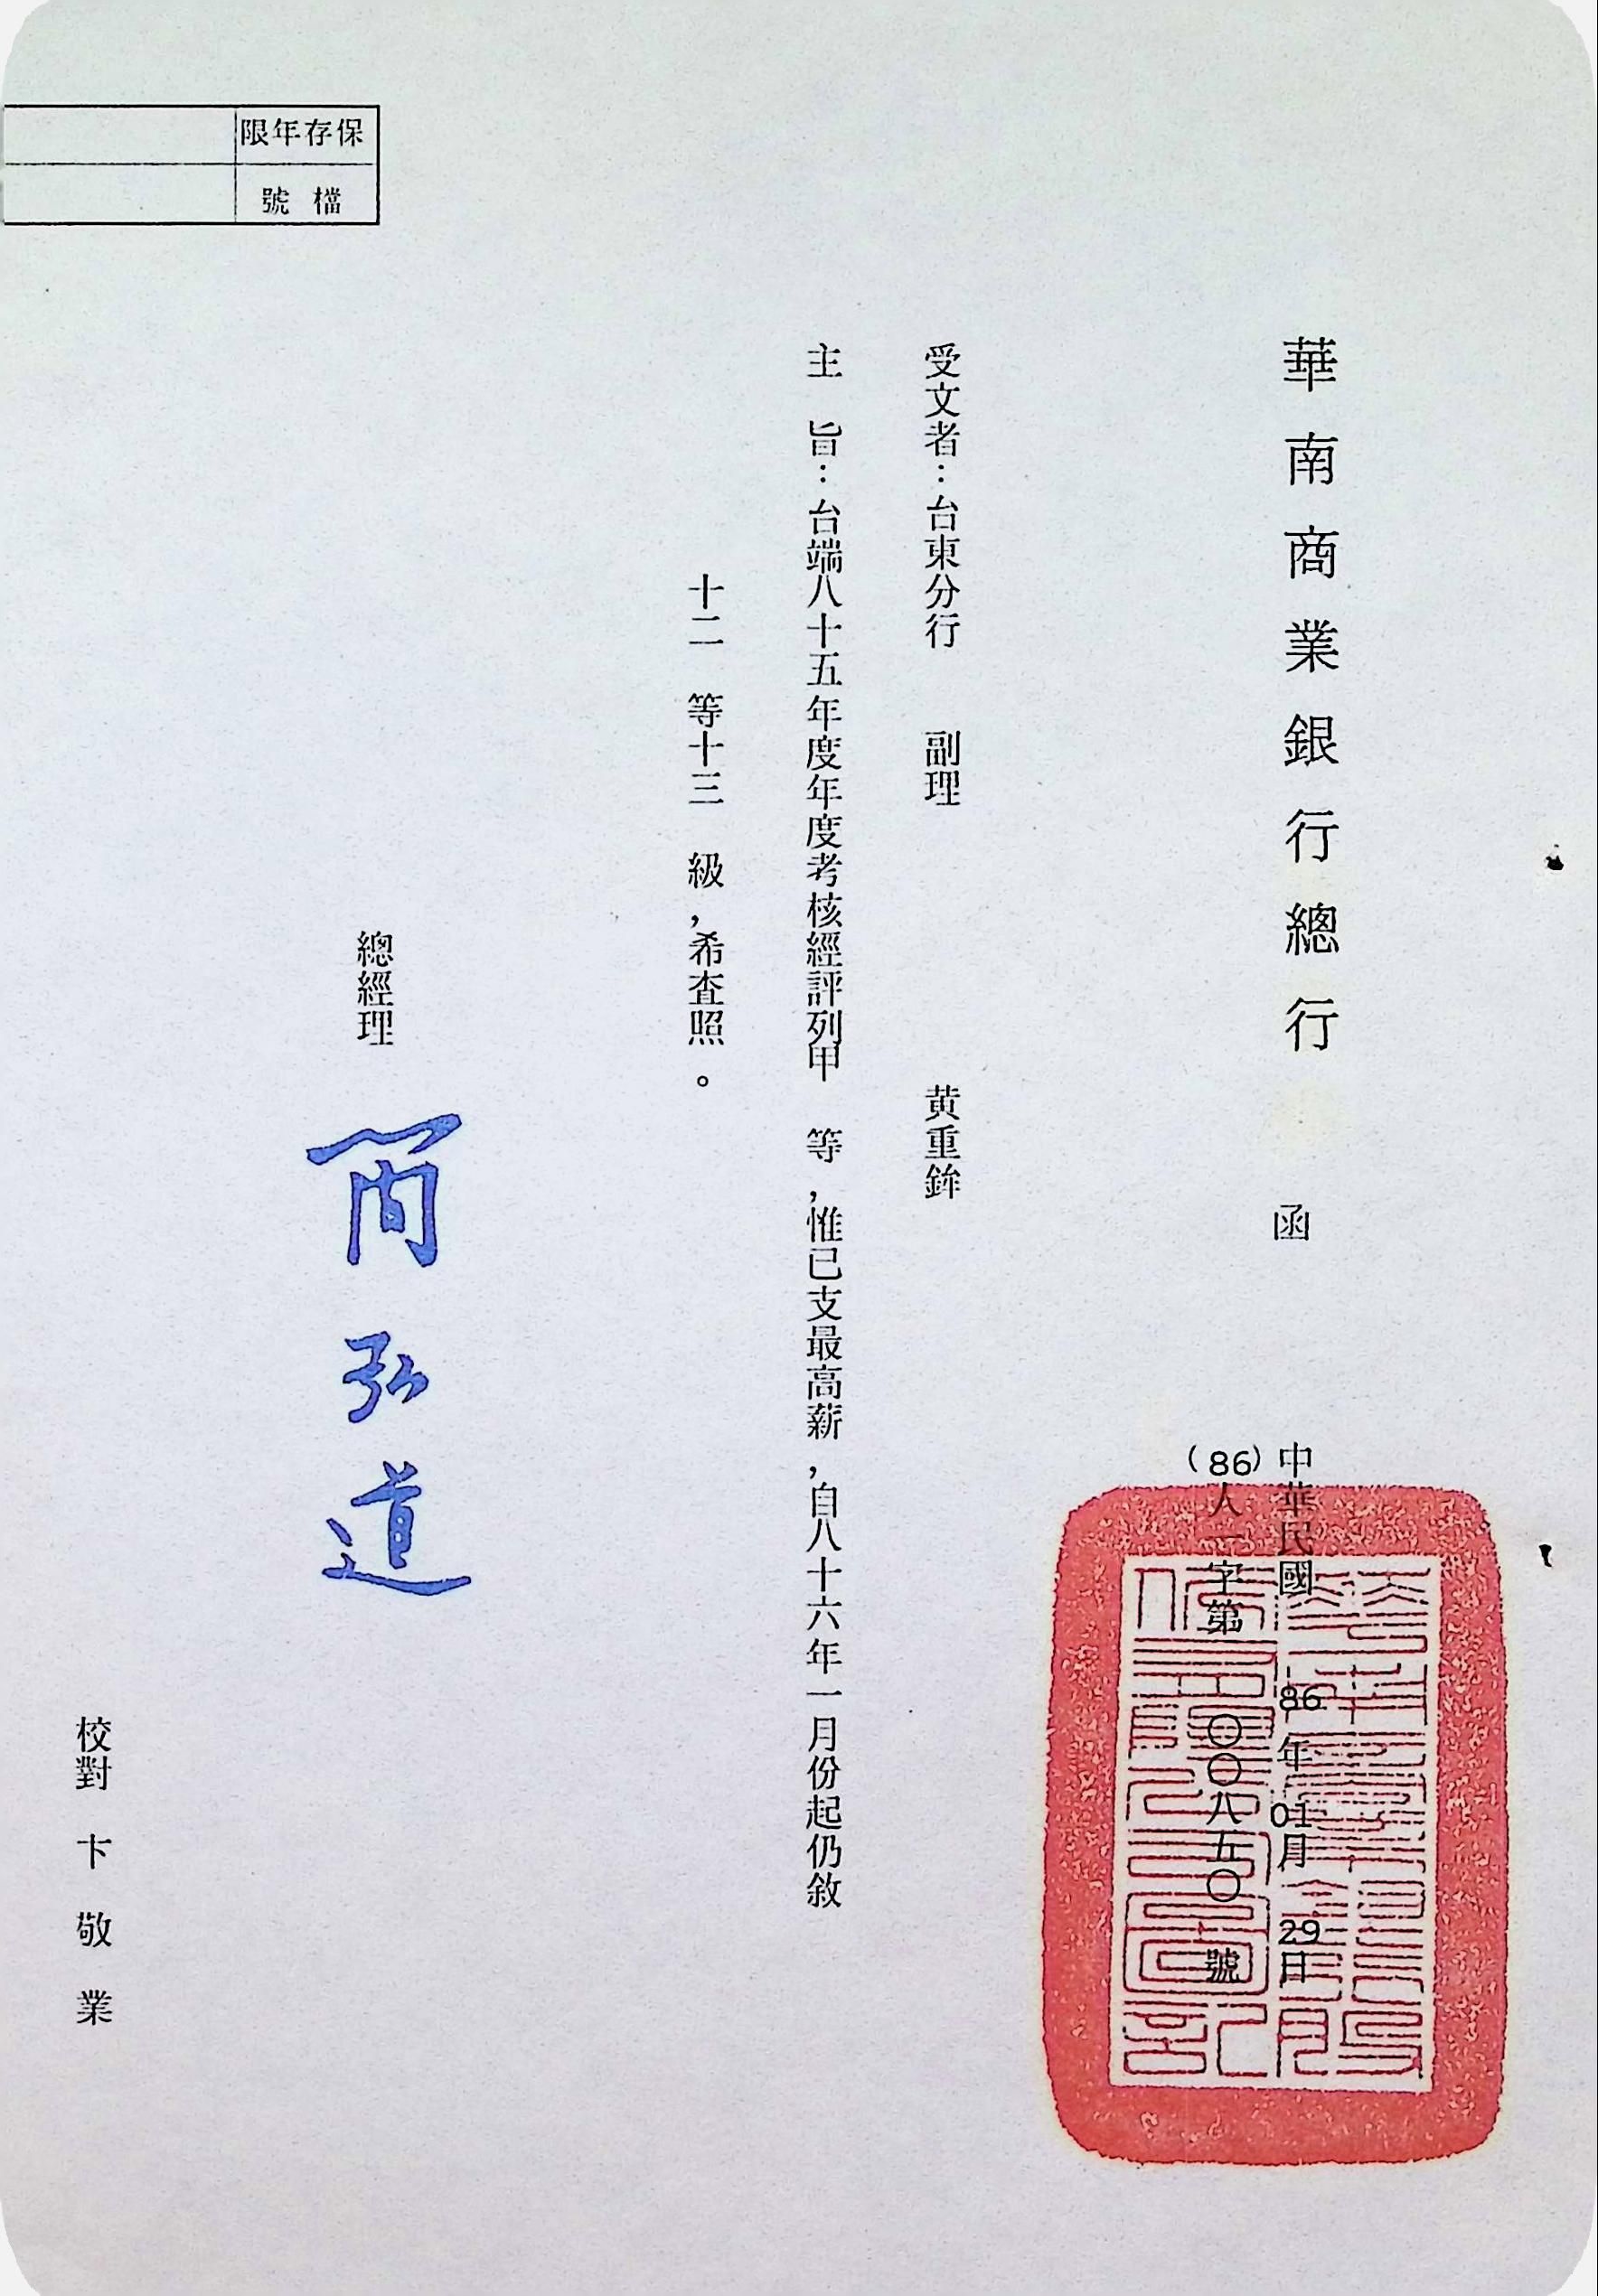 華南商業銀行總行 函
中華民國86年01月29日
(86)人一字第〇〇八五〇號
受文者：台東分行 副理 黄重鉾
主 旨：台端八十五年度年度考核經評列甲 等，惟已支最高薪，自八十六年一月份起仍敘
十二 等十三 級，希查照。
總經理 簡弘道
校對 卞敬業
保存年限
檔號